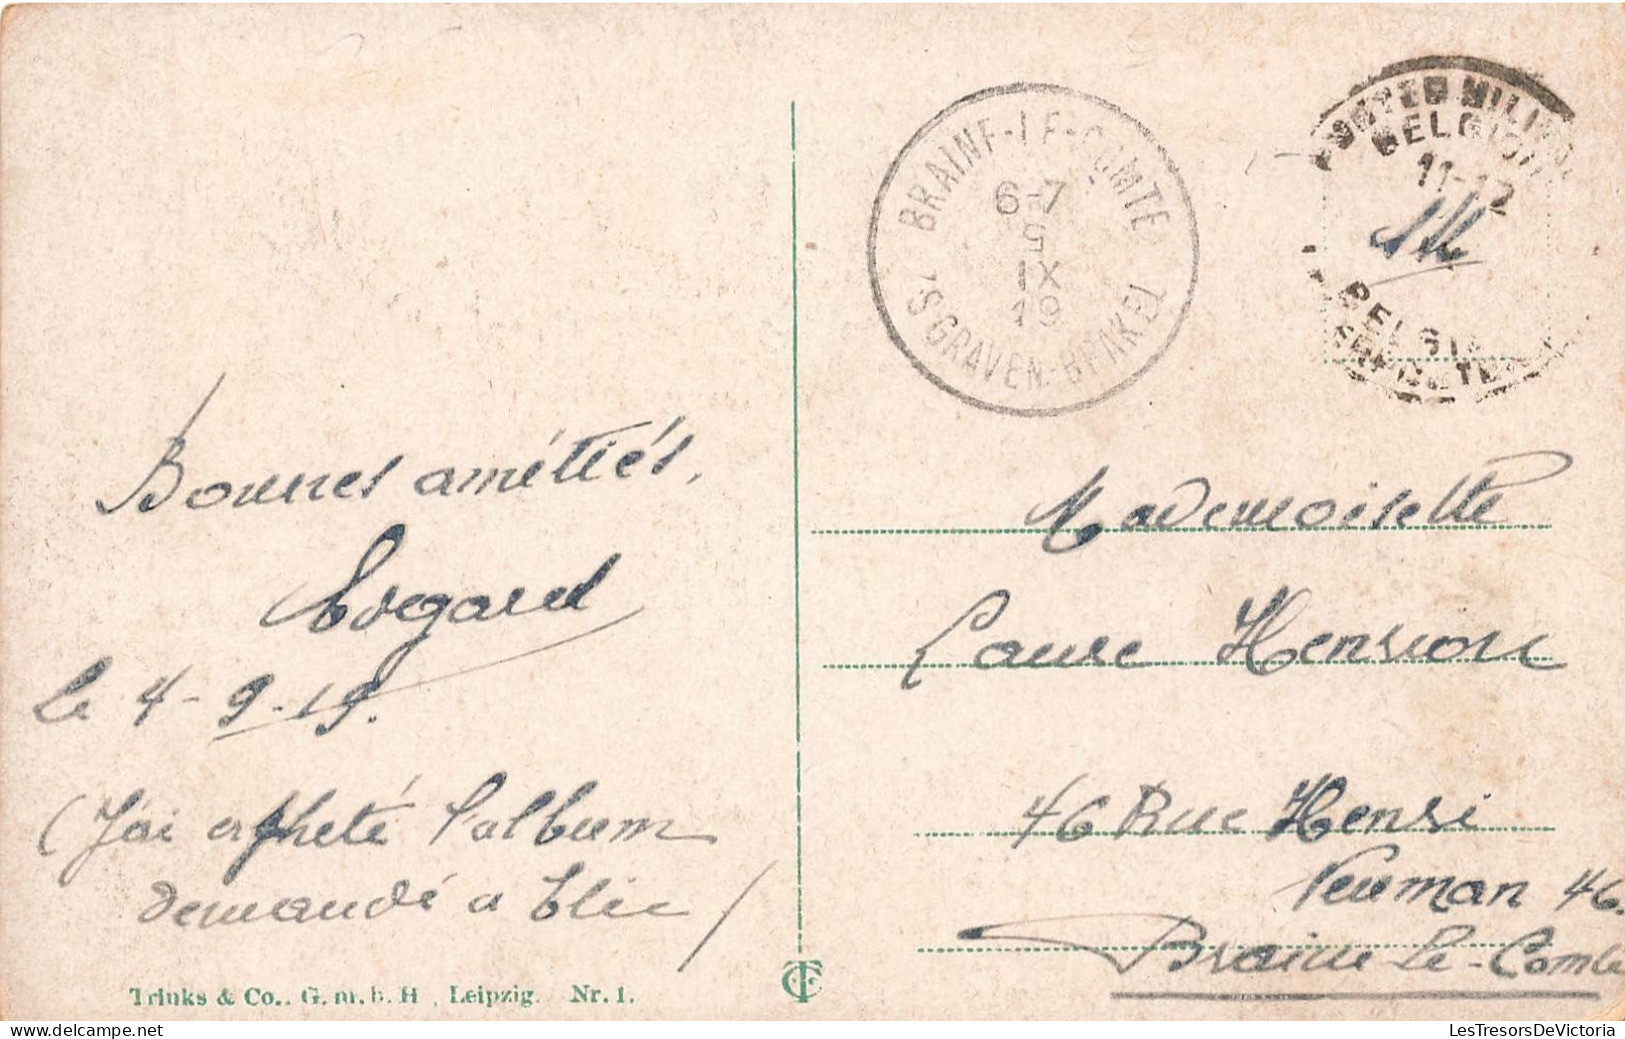 Bonnes amétiés.
Edgard
le 4-9-19.
(J'ai acheté l'album
demandé a Elie)
Trinks & Co.. G.m.b.H , Leipzig. Nr. 1.
BRAINE-LE-COMTE
6-7
5
IX
19
'S GRAVEN-BRAKEL
POSTES MILIT
BELGIQ
11-12
BELGIE
Mademoiselle
Laure Henrion
46 Rue Henri
Neuman 46.
Braine-le-Comte
LesTresorsDeVictoria.com